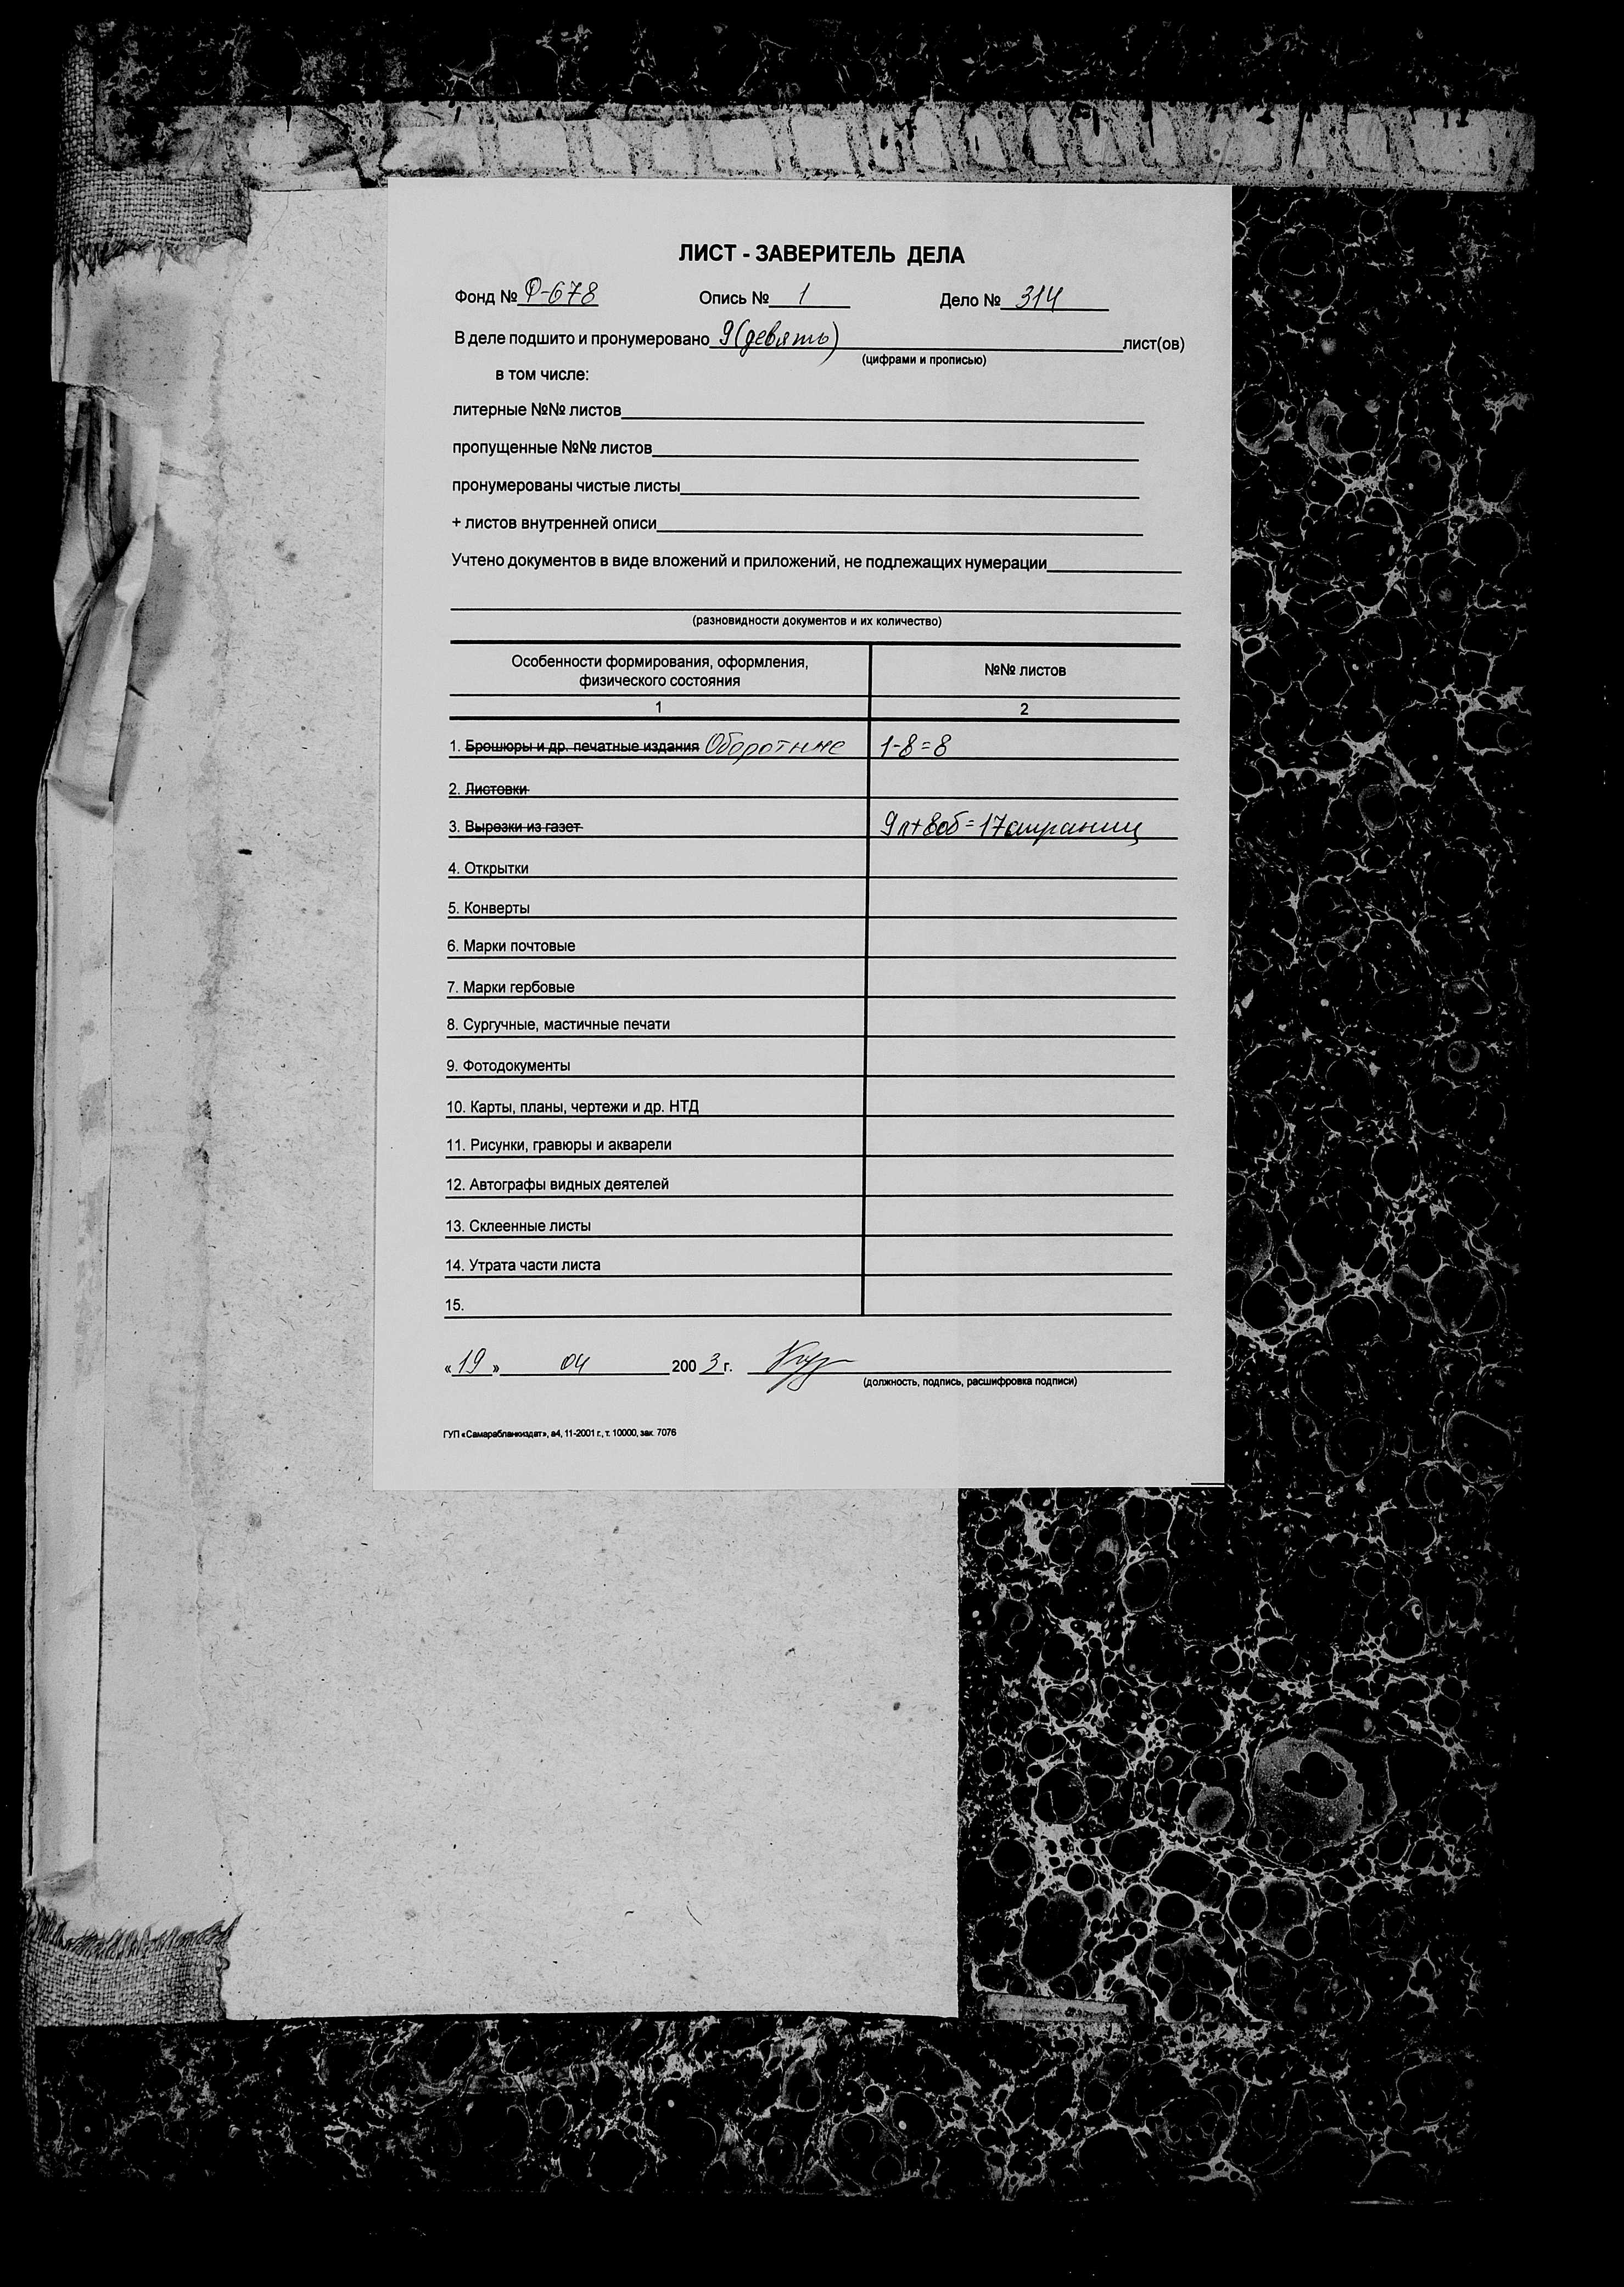 ЛИСТ - ЗАВЕРИТЕЛЬ ДЕЛА
Фонд № Ф-678 Опись № 1 Дело № 314
В деле подшито и пронумеровано 9 (девять) лист(ов)
(цифрами и прописью)
в том числе:
литерные №№ листов
пропущенные №№ листов
пронумерованы чистые листы
+ листов внутренней описи
Учтено документов в виде вложений и приложений, не подлежащих нумерации
(разновидности документов и их количество)
Особенности формирования, оформления, физического состояния №№ листов
1 2
1. Брошюры и др. печатные издания Оборотные 1-8=8
2. Листовки
3. Вырезки из газет 9л+8об=17страниц
4. Открытки
5. Конверты
6. Марки почтовые
7. Марки гербовые
8. Сургучные, мастичные печати
9. Фотодокументы
10. Карты, планы, чертежи и др. НТД
11. Рисунки, гравюры и акварели
12. Автографы видных деятелей
13. Склеенные листы
14. Утрата части листа
15.
«19» 04 2003 г.
(должность, подпись, расшифровка подписи)
ГУП «Самарабланкиздат», а4, 11-2001 г., т. 10000, зак. 7076